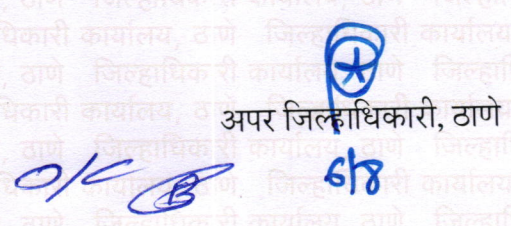 अपर जिल्हाधिकारी, ठाणे
6/8
O/C